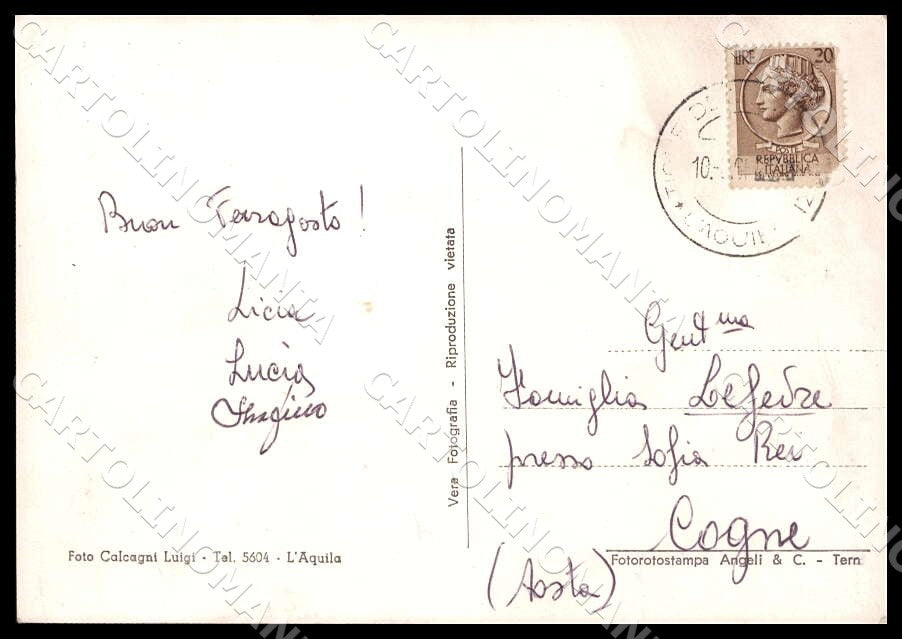 LIRE 20
POSTE
REPVBBLICA
ITALIANA
10.
Buon Ferragosto!
Licia
Lucia
Gent.ma
Famiglia Lefevre
presso Sofia Rev
Cogne
(Aosta)
Vera Fotografia - Riproduzione vietata
Foto Calcagni Luigi - Tel. 5604 - L'Aquila
Fotorotostampa Angeli & C. - Tern
CARTOLINOMANIA